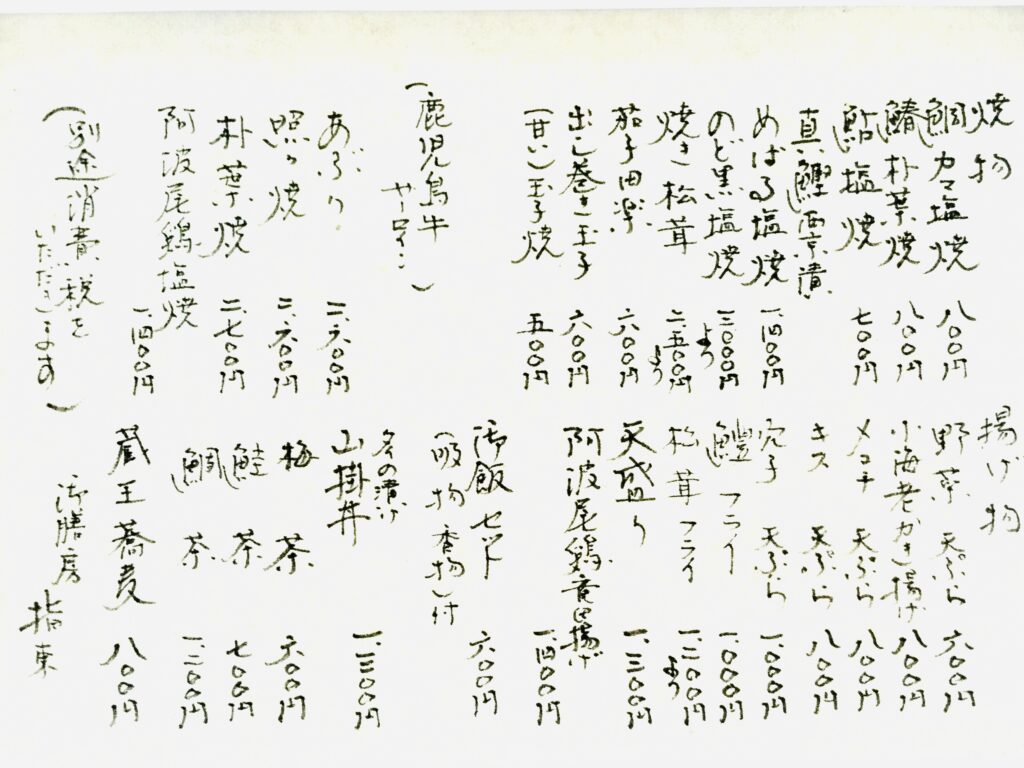 焼物
鯛カマ塩焼 八〇〇円
鰆朴葉焼 八〇〇円
鮎塩焼 七〇〇円
真鰹西京漬
めばる塩焼 一、四〇〇円
のど黒塩焼 三〇〇〇円より
焼き松茸 二、五〇〇円より
茄子田楽 六〇〇円
出し巻き玉子 六〇〇円
(甘い)玉子焼 五〇〇円
(鹿児島牛サーロイン)
あぶり 二、六〇〇円
照り焼 二、六〇〇円
朴葉焼 二、七〇〇円
阿波尾鶏塩焼 一、四〇〇円
(別途消費税を
いただきます)
揚げ物
野菜 天ぷら 六〇〇円
小海老かき揚げ 八〇〇円
メゴチ 天ぷら 八〇〇円
キス 天ぷら 八〇〇円
穴子 天ぷら 一、〇〇〇円
鱧フライ 一、〇〇〇円
松茸フライ 一、二〇〇円より
天盛り 一、三〇〇円
阿波尾鶏竜田揚げ 一、四〇〇円
御飯セット 六〇〇円
(吸物香物)付
山掛丼 一、三〇〇円
梅茶 六〇〇円
鮭茶 七〇〇円
鯛茶 一、二〇〇円
蔵王蕎麦 八〇〇円
御膳房